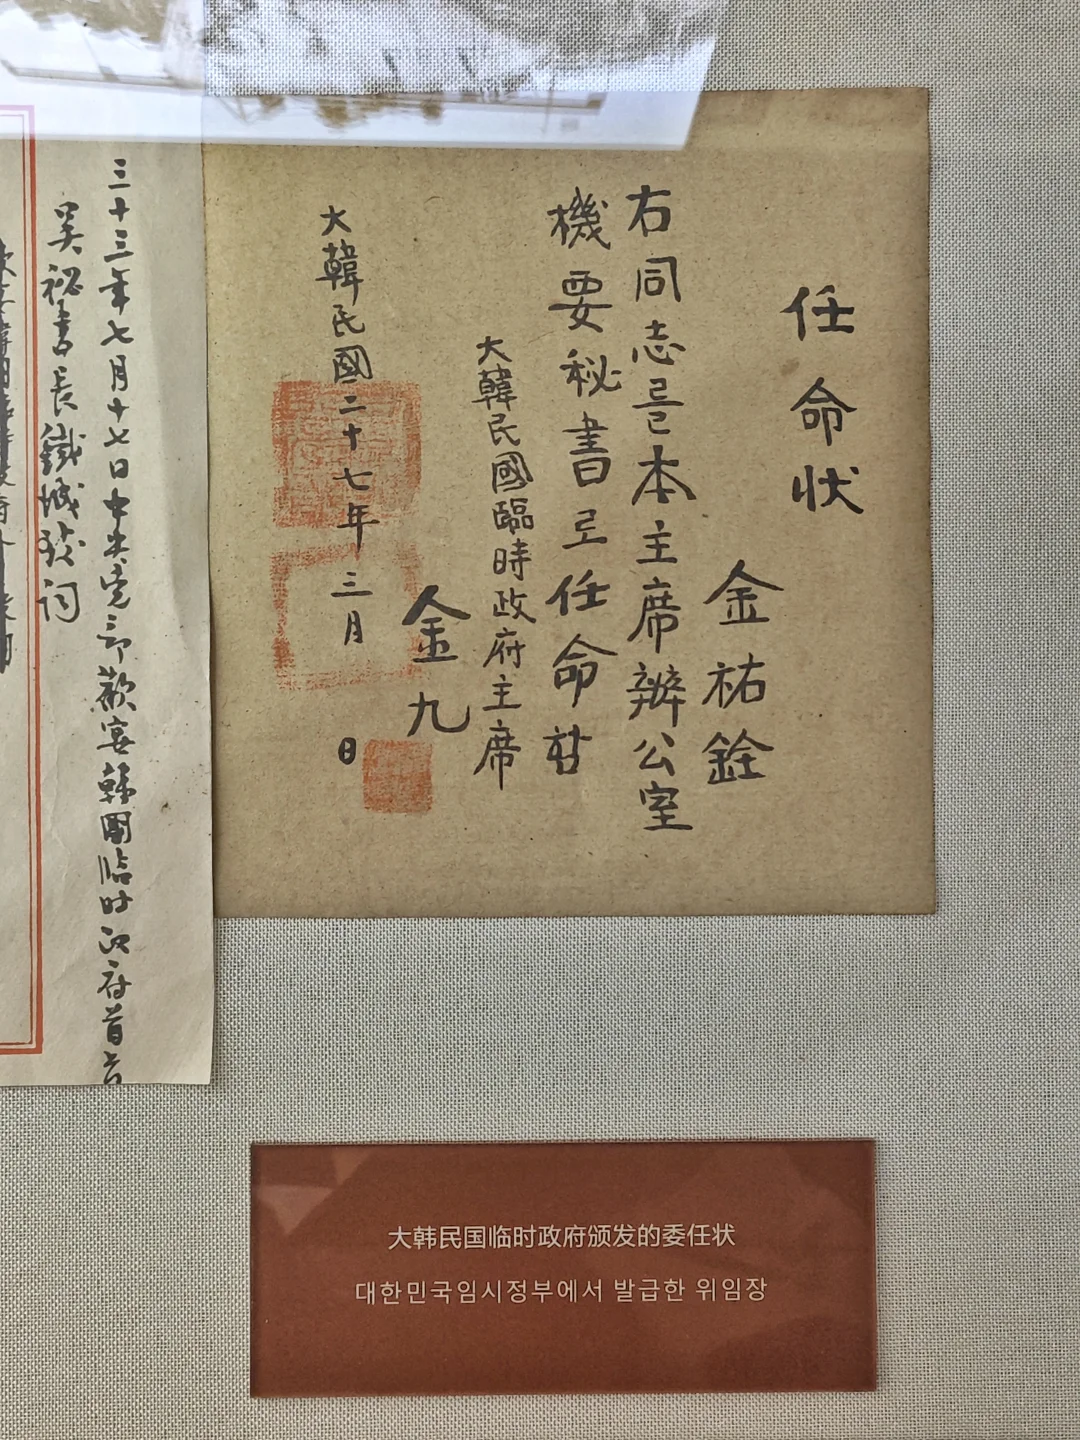 任命狀
金祐銓
右同志를本主席辦公室
機要秘書로任命함
大韓民國臨時政府主席
金九
大韓民國二十七年三月 日
三十三年七月十七日中央党部歡宴韓國臨时政府首
吴祕書長鐵城致词
大韩民国临时政府颁发的委任状
대한민국임시정부에서 발급한 위임장